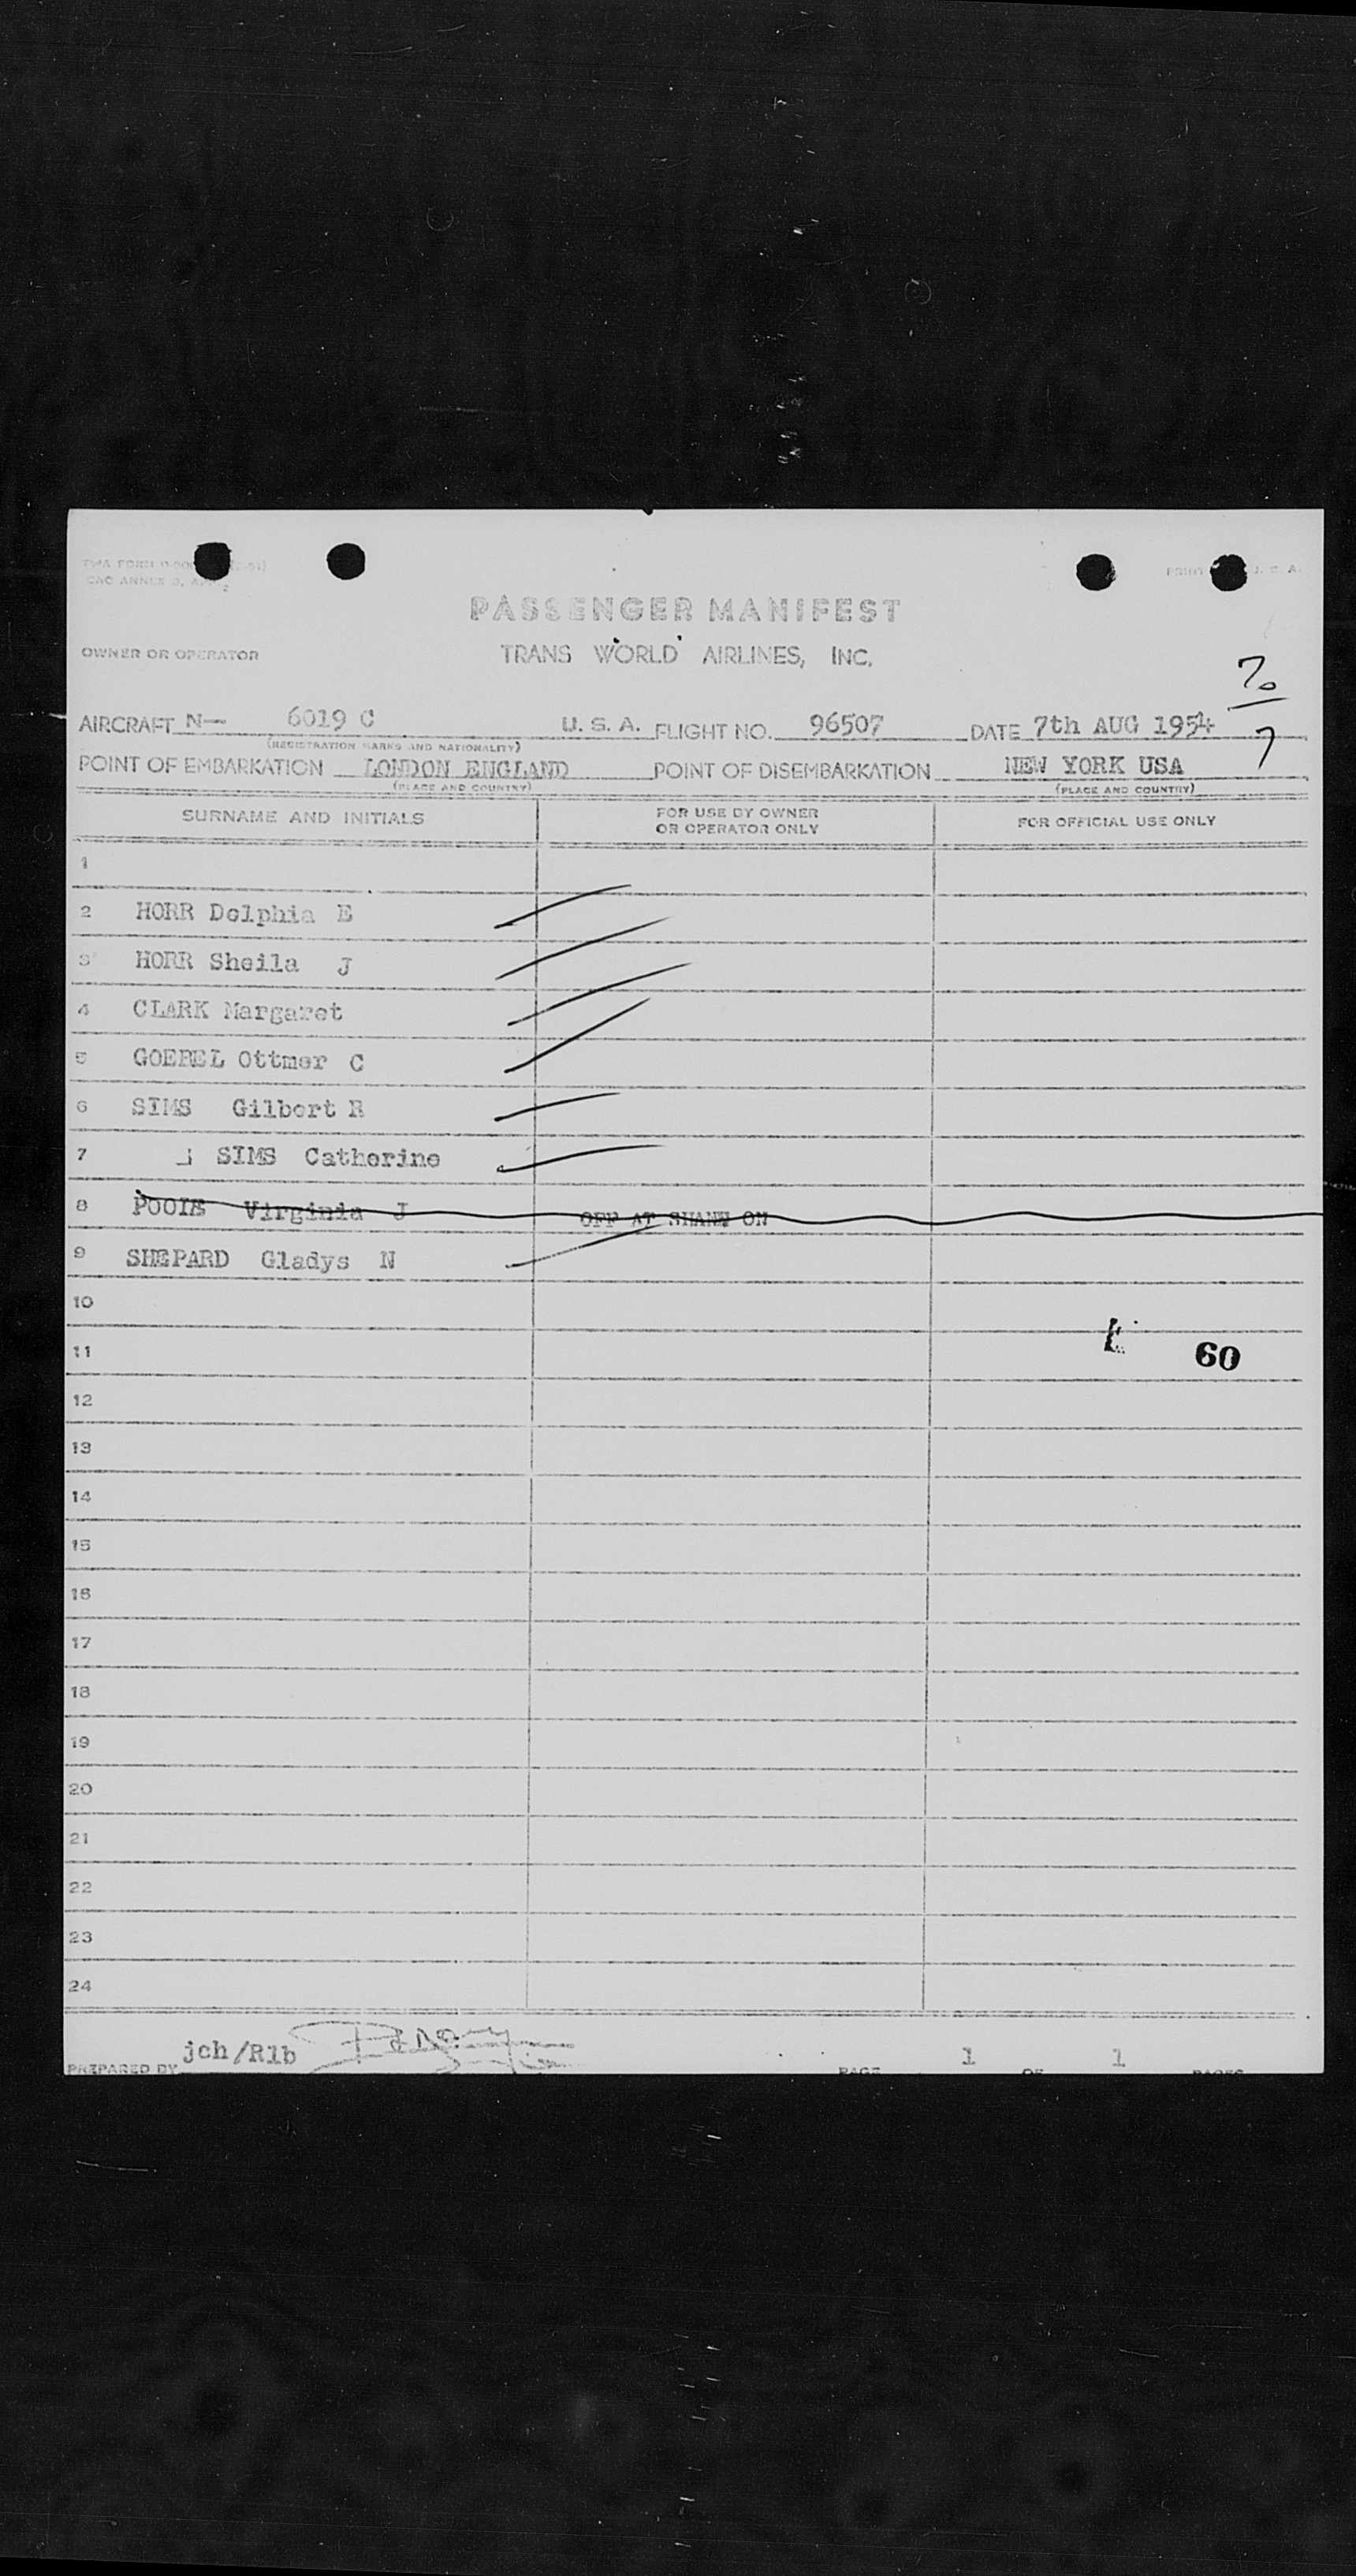 PASSENGER MANIFEST
OWNER OR OPERATOR TRANS WORLD AIRLINES, INC.
70
AIRCRAFT N— 6019 C U. S. A. FLIGHT NO. 96507 DATE 7th AUG 1954
7
(REGISTRATION MARKS AND NATIONALITY)
POINT OF EMBARKATION LONDON ENGLAND POINT OF DISEMBARKATION NEW YORK USA
(PLACE AND COUNTRY) (PLACE AND COUNTRY)
SURNAME AND INITIALS FOR USE BY OWNER OR OPERATOR ONLY FOR OFFICIAL USE ONLY
1
2 HORR Dolphia E
3 HORR Sheila J
4 CLARK Margaret
5 GOEBEL Ottmer C
6 SIMS Gilbert R
7 SIMS Catherine
8 POOLE Virginia J OFF AT SHANN ON
9 SHEPARD Gladys N
10
11 60
12
13
14
15
16
17
18
19
20
21
22
23
24
PREPARED BY jch/Rlb PAGE 1 OF 1 PAGES